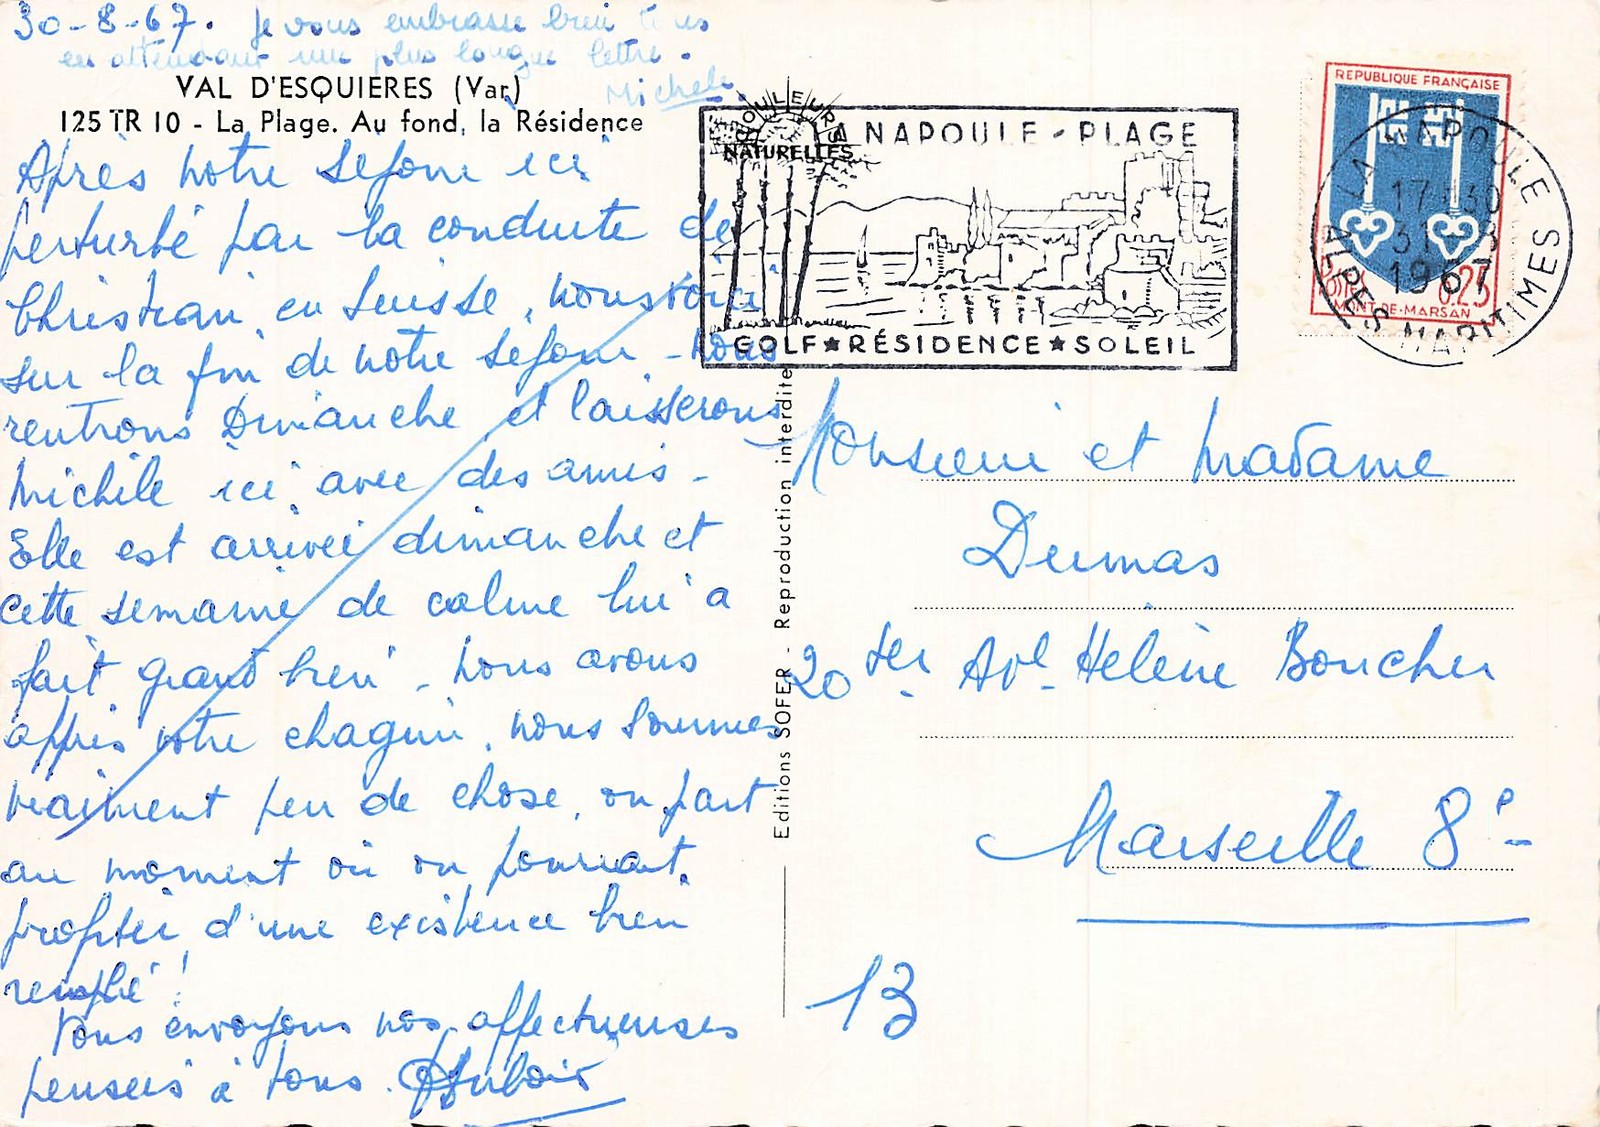 30-8-67. Je vous embrasse bien tous
en attendant une plus longue lettre.
Michele
VAL D'ESQUIERES (Var)
125 TR 10 - La Plage. Au fond, la Résidence
Après notre séjour ici
perturbé par la conduite de
Christian en Suisse, nous voici
sur la fin de notre séjour - Nous
rentrons Dimanche et laisserons
Michèle ici avec des amis -
Elle est arrivée dimanche et
cette semaine de calme lui a
fait grand bien - Nous avons
appris votre chagrin, nous sommes
vraiment peu de chose, on part
au moment où on pourrait
profiter d'une existence bien
remplie !
Vous envoyons nos affectueuses
pensées à tous.
COULEURS
NATURELLES
LA NAPOULE - PLAGE
GOLF★RÉSIDENCE★SOLEIL
REPUBLIQUE FRANÇAISE
POSTES 0.25
MONT-DE-MARSAN
LA NAPOULE
17 30
31-8
1967
ALPES MARITIMES
Editions SOFER - Reproduction interdite
Monsieur et Madame
Dumas
20 ter Ave Hélène Boucher
Marseille 8e -
13